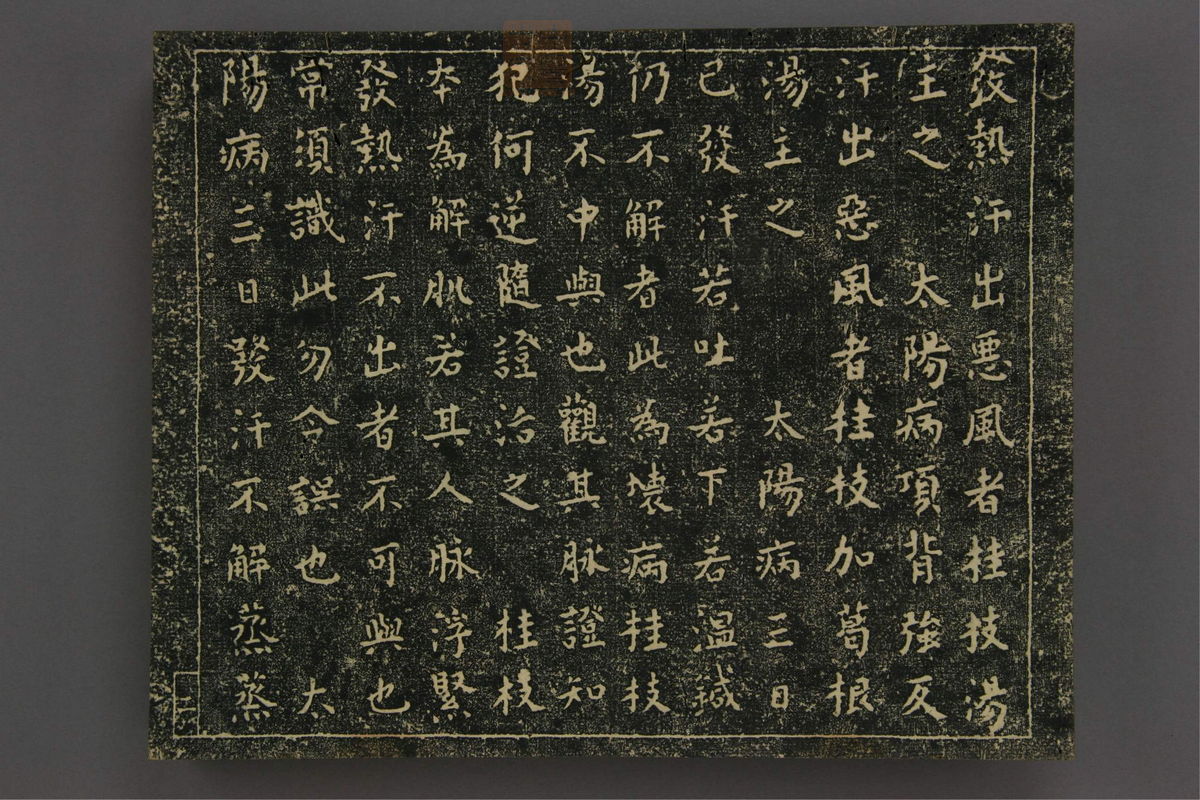 發熱汗出惡風者桂枝湯
主之　太陽病項背強反
汗出惡風者桂枝加葛根
湯主之　太陽病三日
已發汗若吐若下若溫鍼
仍不解者此為壞病桂枝
湯不中與也觀其脉證知
犯何逆隨證治之　桂枝
本為解肌若其人脉浮緊
發熱汗不出者不可與也
常須識此勿令誤也　太
陽病三日發汗不解蒸蒸